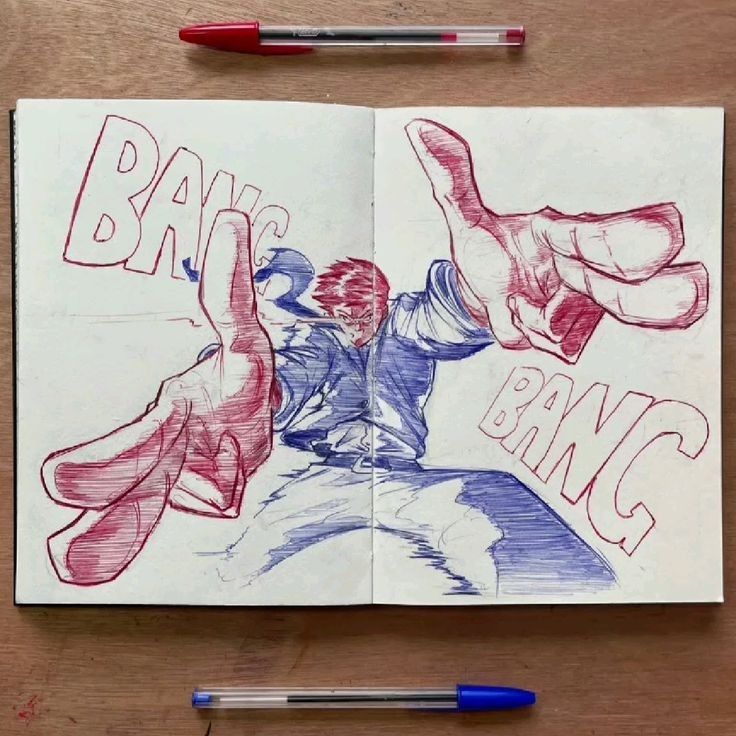 BANG
BANG